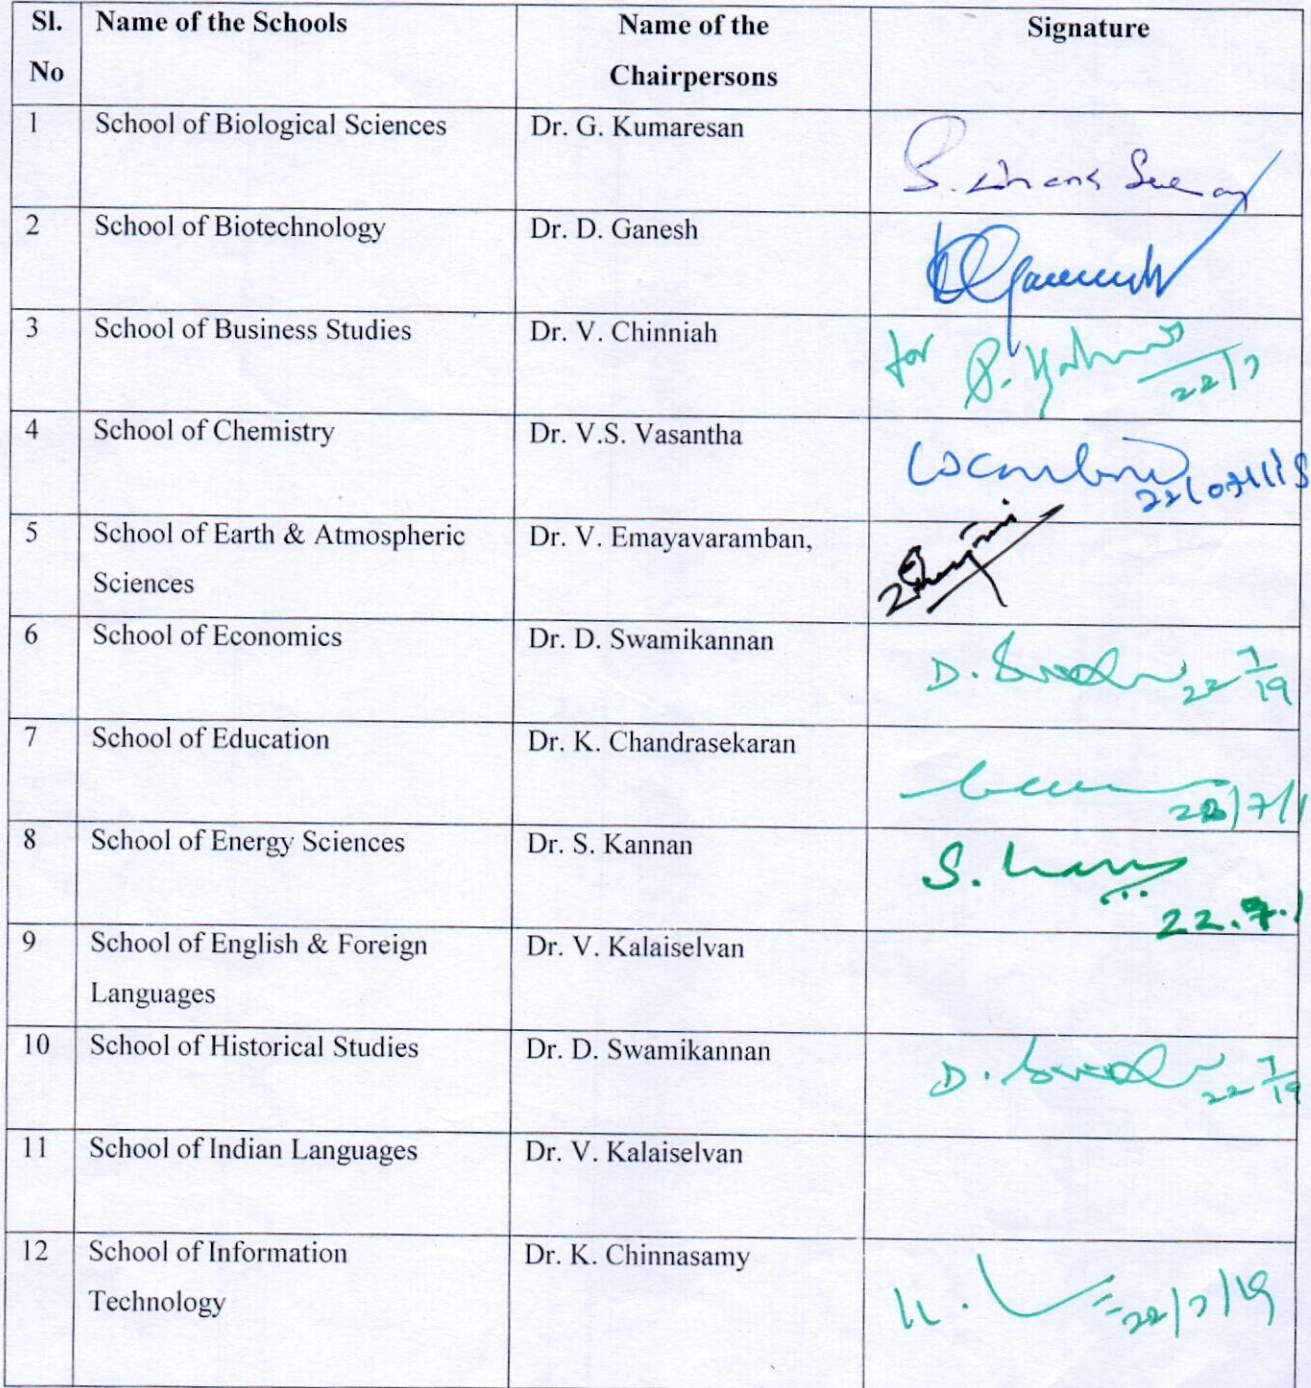 Sl. No
Name of the Schools
Name of the
Chairpersons
Signature
1
School of Biological Sciences
Dr. G. Kumaresan
2
School of Biotechnology
Dr. D. Ganesh
3
School of Business Studies
Dr. V. Chinniah
for
22/7
4
School of Chemistry
Dr. V.S. Vasantha
5
School of Earth & Atmospheric
Sciences
Dr. V. Emayavaramban,
6
School of Economics
Dr. D. Swamikannan
D.
22 7/19
7
School of Education
Dr. K. Chandrasekaran
8
School of Energy Sciences
Dr. S. Kannan
S.
22.7.1
9
School of English & Foreign
Languages
Dr. V. Kalaiselvan
10
School of Historical Studies
Dr. D. Swamikannan
D.
22 7/19
11
School of Indian Languages
Dr. V. Kalaiselvan
12
School of Information
Technology
Dr. K. Chinnasamy
K.
22/7/19